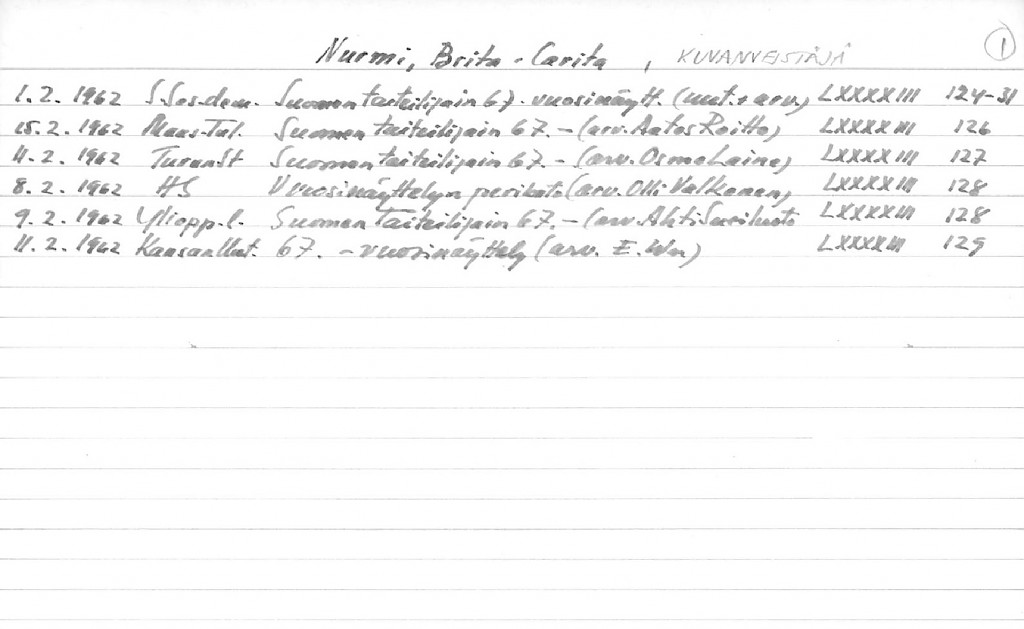 Nurmi, Brita-Carita, KUVANVEISTÄJÄ 1
1. 2. 1962 S.Sos.dem. Suomen taiteilijain 67. vuosinäytt. (uut. + arv.) LXXXXIII 124-31
15. 2. 1962 Maas.Tul. Suomen taiteilijain 67. - (arv. Aatos Roitto) LXXXXIII 126
11. 2. 1962 TurunSt Suomen taiteilijain 67. - (arv. Osmo Laine) LXXXXIII 127
8. 2. 1962 HS Vuosinäyttelyn perikato (arv. Olli Valkonen) LXXXXIII 128
9. 2. 1962 Yliopp.l. Suomen taiteilijain 67. - (arv. Ahti LXXXXIII 128
11. 2. 1962 KansanUut. 67. - vuosinäyttely (arv. E. Wn) LXXXXIII 129